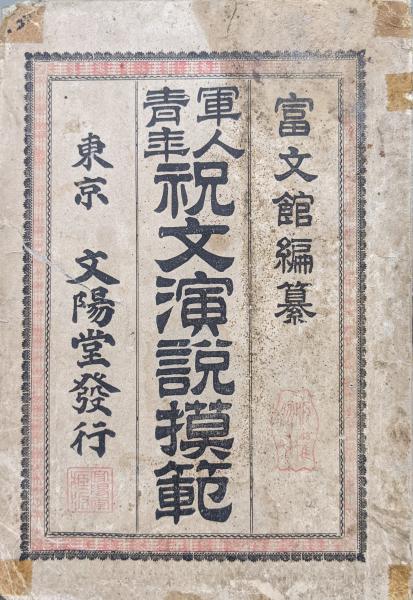 富文館編纂
軍人青年祝文演説摸範
東京 文陽堂發行